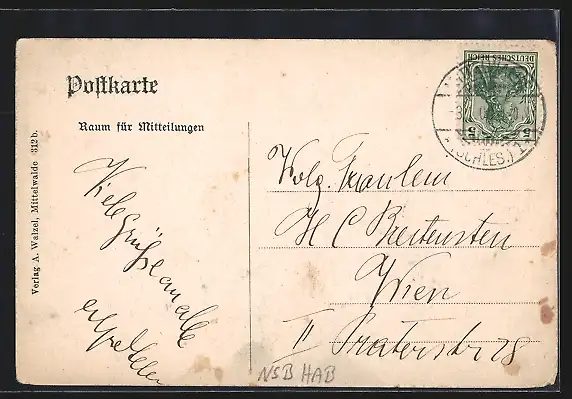 Postkarte
Raum für Mitteilungen
Verlag A. Walzel, Mittelwalde 312 b.
Viele Grüsse an alle
DEUTSCHES REICH
5 5
(SCHLES.) 1
Fräulein
H C Breitenstein
Wien
II Praterstr 28
NSB HAB